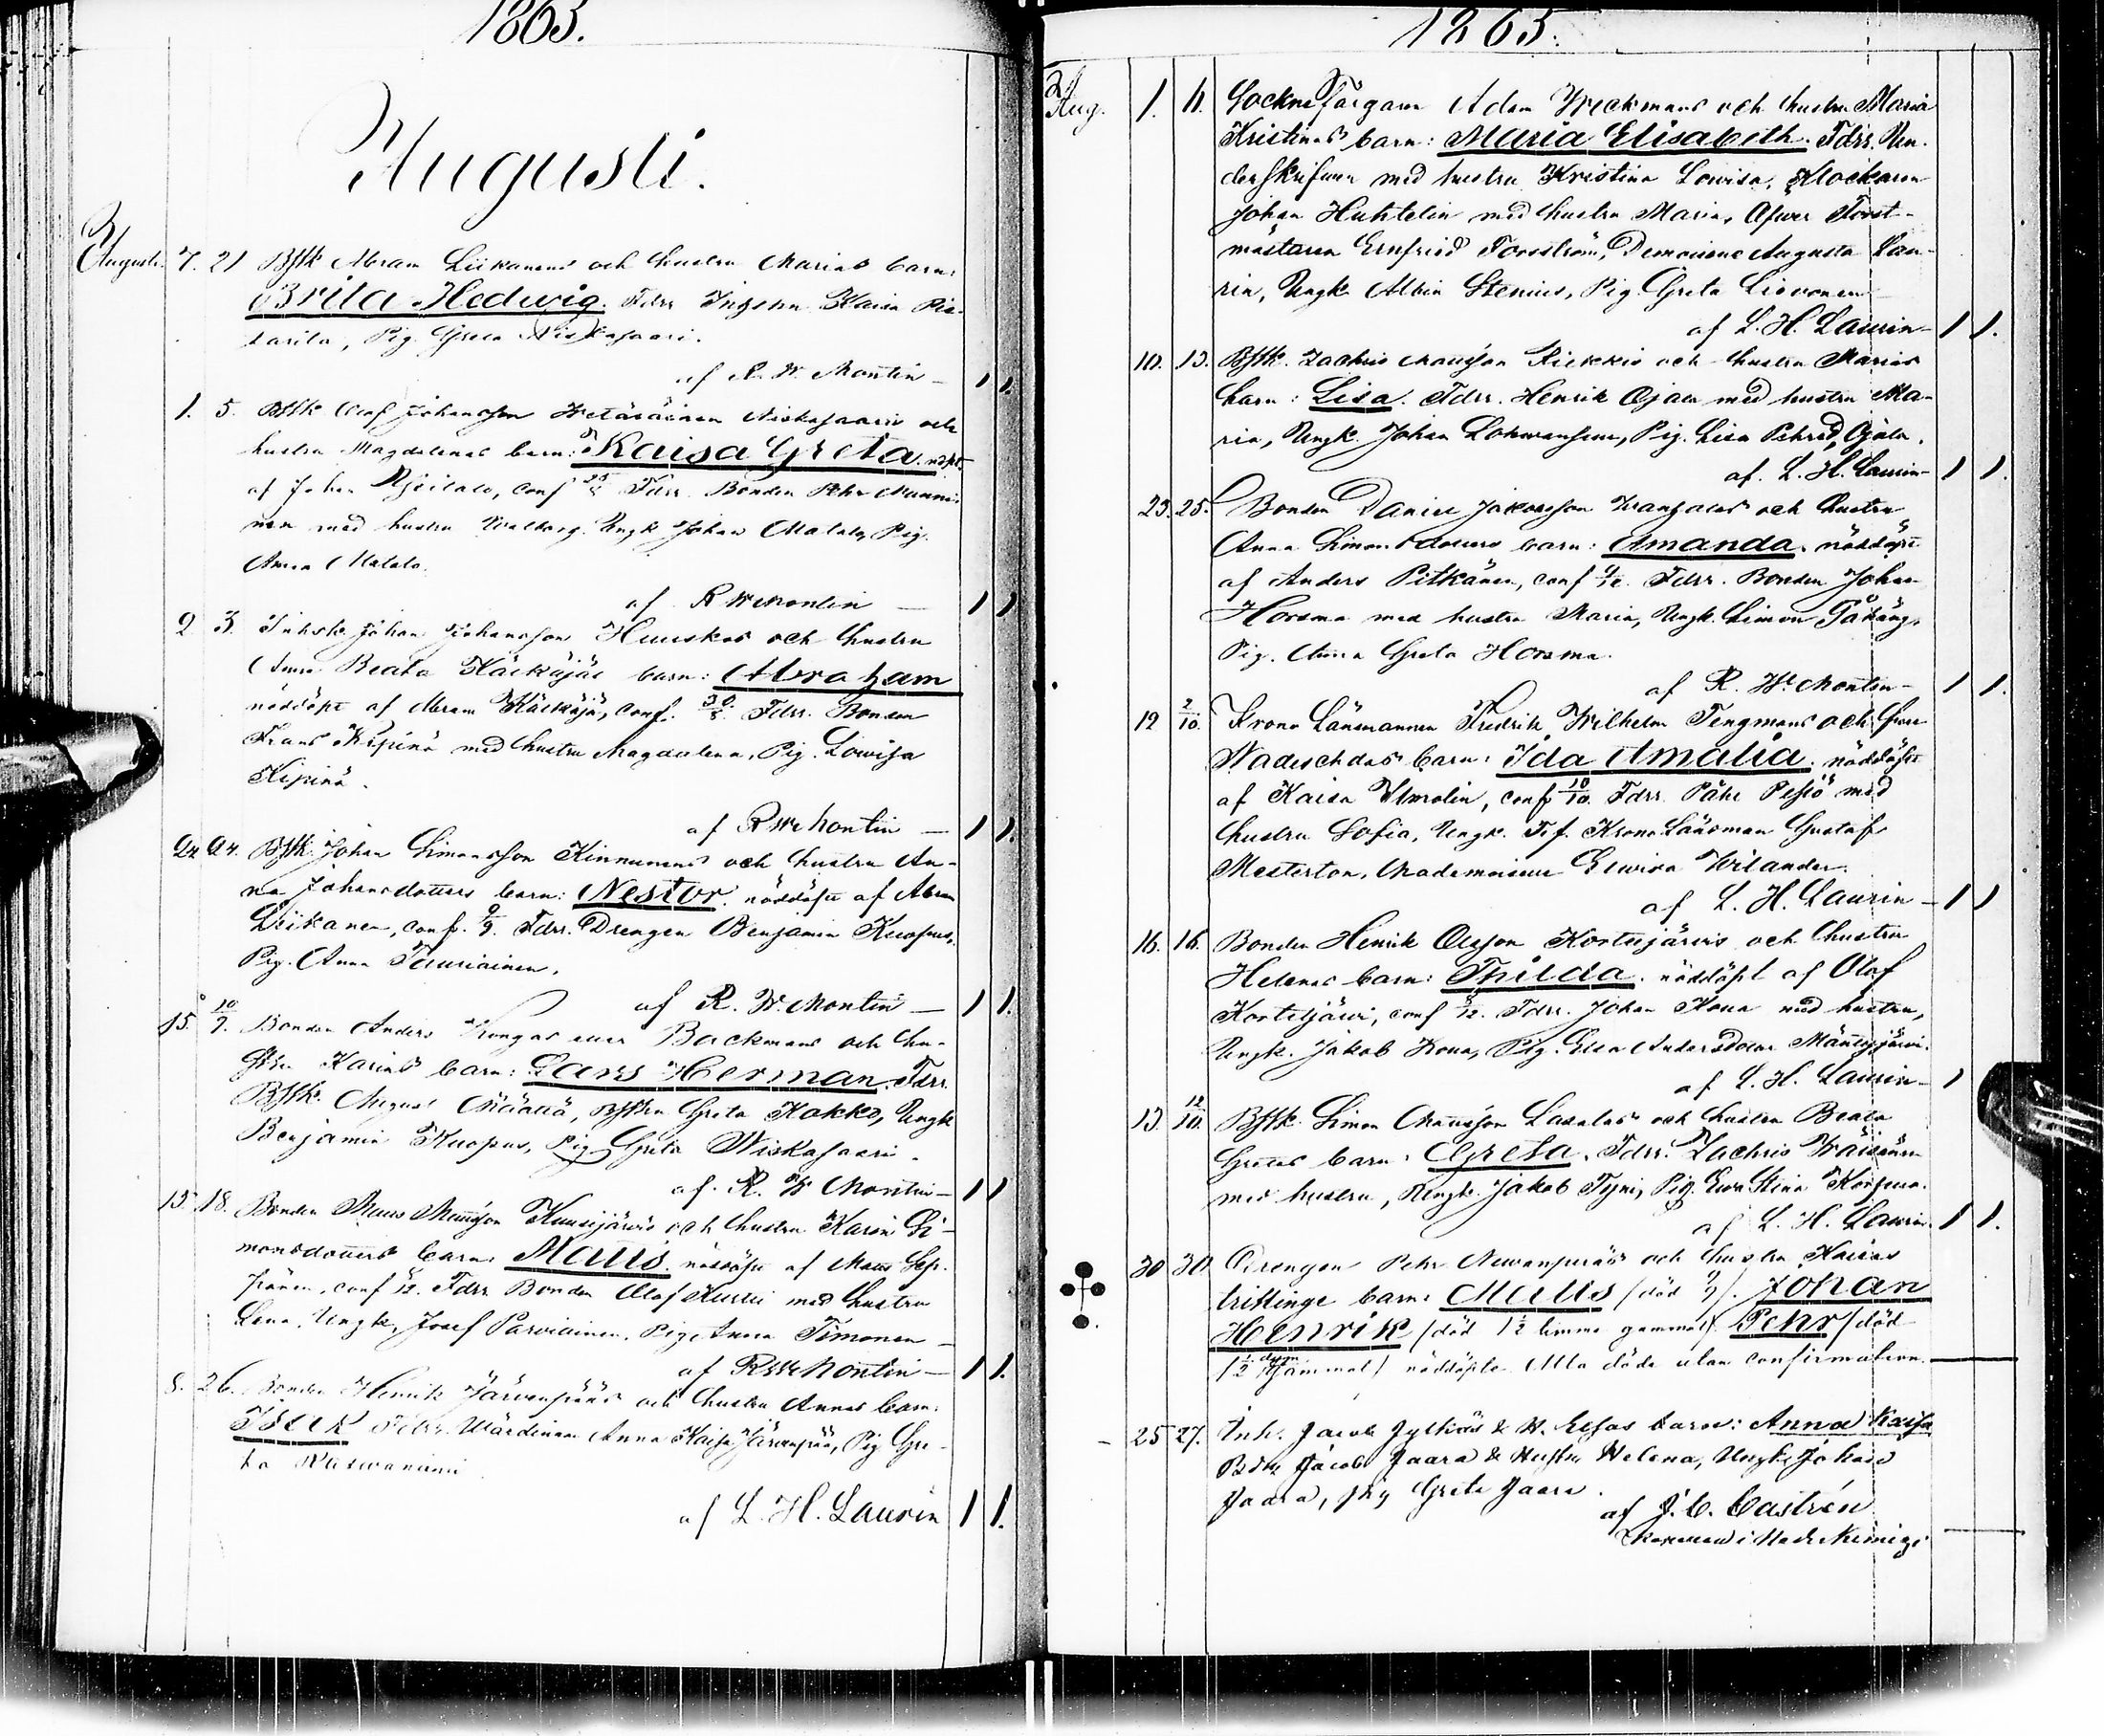 1865.
Augusti.
Augusti. 7. 21 Bstk Abram Liikanens och hustru Marias barn:
Brita Hedwig. Fdrr Inhysn Kaisa
Pig. Greta Niskasaari.
af R. W. Montin
1. 5. Bstk Olof Johansson Niskasaaris och
hustru Magdalenas barn: Kaisa Greta. nöpt.
af Johan conf 25/8 Fdrr. Bonden Pehr
nen med hustru Walborg. Ungk Johan Matala, Pig.
Anna Matala.
af R W Montin
2 3. Inhsk Johan Johansson Huuskos och hustru
Anna Beata Käckäjäs barn: Abraham
nöddöpt af Abram Käckäjä, conf. 30/8. Fdrr. Bonden
Frans Kipinä med hustru Magdalena, Pig. Lowisa
Kipinä.
af R W Montin
24 24. Bstk Johan Simonsson Kinnunens och hustru An-
na Johansdotters barn: Nestor. nöddöpt af Abram
Liikanen, conf. 9/9. Fdrr. Drengen Benjamin Kuopus,
Pig. Anna Tauriainen.
af R. W. Montin
15. 10/9. Bonden Anders Kongas eller Backmans och hu-
stru Karins barn: Lars Herman. Fdrr.
Bstk. August Määttä, Bsthn Greta Kokko, Ungk
Benjamin Kuopus, Pig Greta Niskasaari.
af R. W Montin
15. 18. Bonden Mans Manssson Kuusijärvis och hustru Karin Si-
monsdotters barn: Matts. nöddöpt af Matts Sep-
pänen, conf /12. Fdrr Bonden Olof Kurtti med hustru
Lena, Ungk. Josef Parviainen, Pig. Anna Timonen
af R W Montin
8. 26. Bonden Henrik Järvenpääs och hustru Annas barn:
Isak Fdrr. Wärdinnan Anna Kaisa Järvenpää, Pig Gre-
ta
af L. H. Laurin
1865.
Aug. 1. 11. Sockne Färgaren Adam Weckmans och hustru Maria
Kristinas barn: Maria Elisabeth. Fdrr. Un-
derskrifwen med hustru Kristina Lowisa, Klockaren
Johan Huhtelin med hustru Maria, Ofwer Forst-
mästaren Ernfried Forsström, Demoiselle Augusta Lau-
rin, Ungk. Albin Stenius, Pig. Greta Lievonen
af L. H. Laurin
10. 13. Bstk. Zachris Mattsson Kiekkis och hustru Marias
barn: Lisa. Fdrr. Henrik Ojala med hustru Ma-
ria, Ungk. Johan Lohvansuu, Pig. Lisa Pehrsd. Ojala.
af. L. H. Laurin
23. 25. Bonden Daniel Jakobsson och hustru
Anna Simonsdotters barn: Amanda. nöddöpt
af Anders Pitkänen, conf Fdrr. Bonden Johan
Horsma med hustru Maria, Ungk. Simon
Pig. Anna Greta Horsma.
af R. W. Montin
12 2/10. Krono Länsmannen Fredrik Wilhelm Tengmans och hustru
Nadeschdas barn: Ida Amalia. nöddöpt
af Kaisa conf 10/10. Fdrr. Pähr Pessö med
hustru Sofia, Ungk. T.f. Krono Länsman Gustaf
Mesterton, Mademoiselle Elwira Wilander.
af L. H. Laurin
16. 16. Bonden Henrik Olsson Kortejärvis och hustru
Helenas barn: Thilda. nöddöpt af Olof
Kortejärvi, conf /12. Fdrr. Johan Kona med hustru,
Ungk. Jakob Kona, Pig. Elsa Andersdotter Mäntyjärvi.
af L. H. Laurin
13. 12/10. Bstk. Simon Mansson och hustru Beata
Gretas barn: Greta. Fdrr. Zachris Wäisänen
med hustru, Ungk. Jakob Tyni, Pig. Ewa Stina
af L. H. Laurin
30 30. Drengen Pehr och hustru Kaisas
trillinge barn: Matts (död Johan
Henrik (död 1 1/2 timme gammal). Pehr (död
1 1/2 dygn gammal) nöddöpte. Alla döde utan confirmation.
25 27. Inh. Jacob Jylhäs & H. Elsas barn: Anna Kaisa
Bstk Jacob Jaara & Hustru Helena, Ungk. Johan
Jaara, Pig Greta Jaara.
af J. C. Castrén